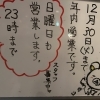 12月30日(火)まで
年内営業です。
日曜日も
営業します。
23時まで